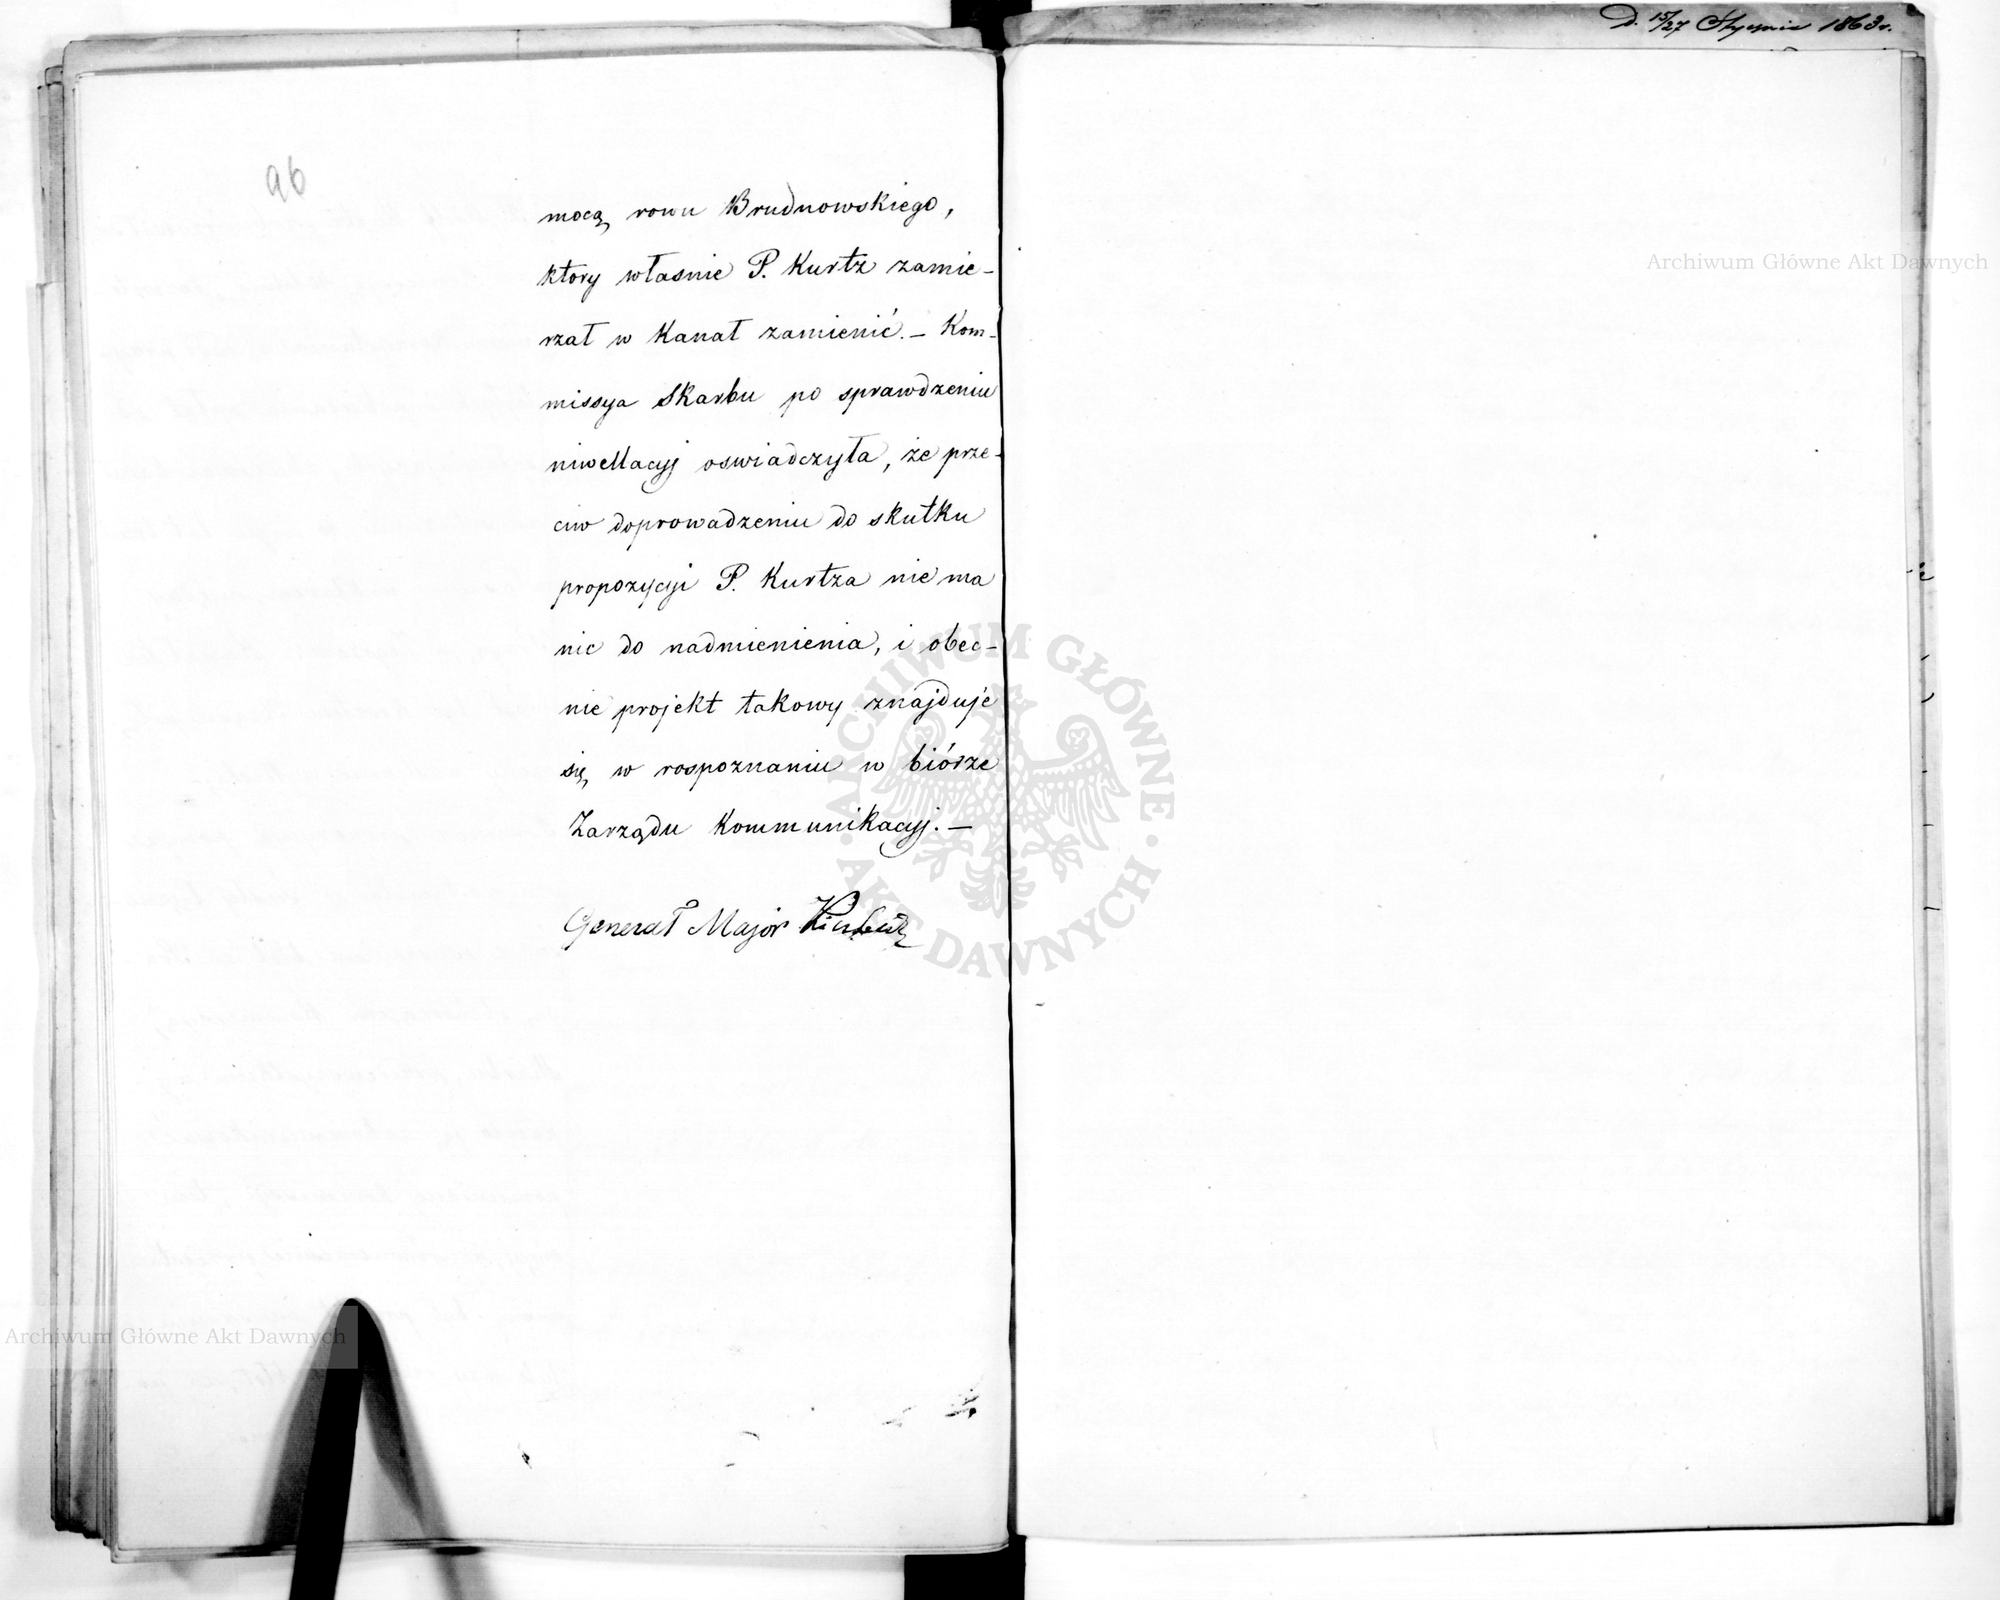 D. 15/27 Stycznia 1863 r.
96
mocą rowu Brudnowskiego,
ktory własnie P. Kurtz zamie-
rzał w Kanał zamienić. – Kom-
missya Skarbu po sprawdzeniu
niwellacyj oswiadczyła, że prze-
ciw doprowadzeniu do skutku
propozycyi P. Kurtza nie ma
nic do nadmienienia, i obec-
nie projekt takowy znajduje
się w rospoznaniu w biórze
Zarządu Kommunikacyj. –
Generał Major
Archiwum Główne Akt Dawnych
Archiwum Główne Akt Dawnych
ARCHIWUM GŁÓWNE · AKT DAWNYCH ·